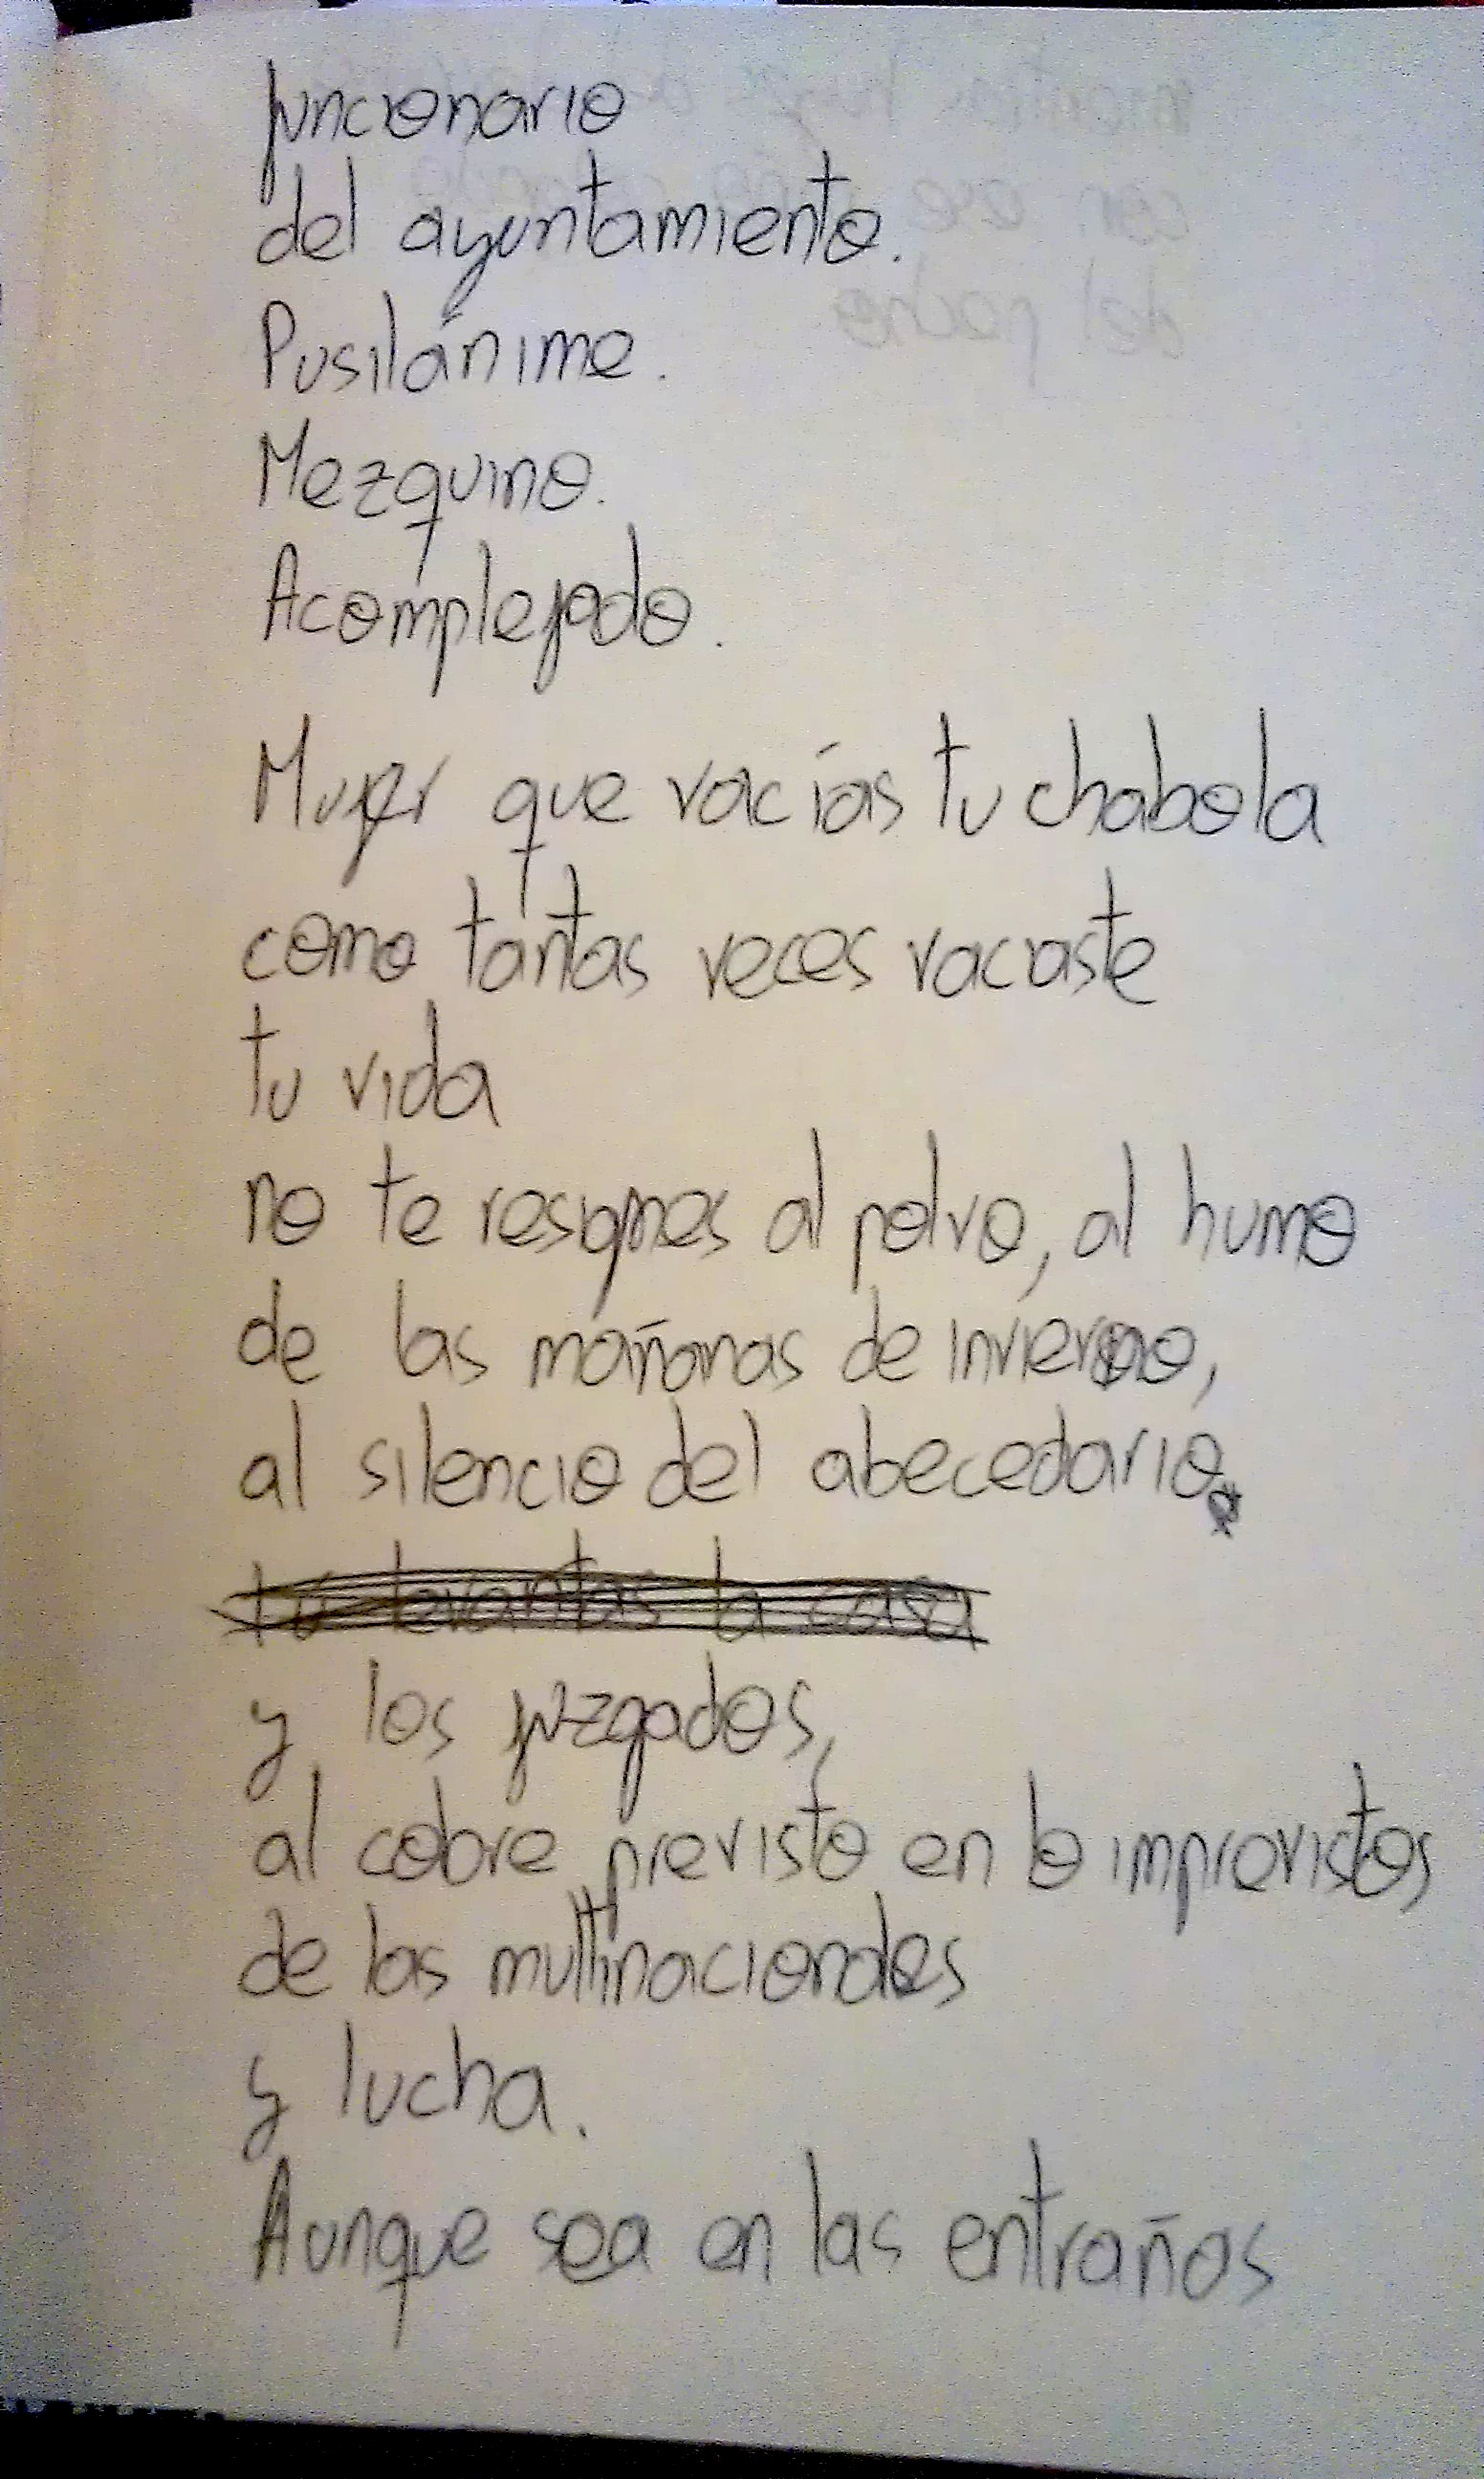 funcionario
del ayuntamiento.
Pusilánime.
Mezquino.
Acomplejado.
Mujer que vacías tu chabola
como tantas veces vaciaste
tu vida
no te resignes al polvo, al humo
de las mañanas de invierno,
al silencio del abecedario
y los juzgados,
al cobre previsto en lo imprevistos
de las multinacionales
y lucha.
Aunque sea en las entrañas